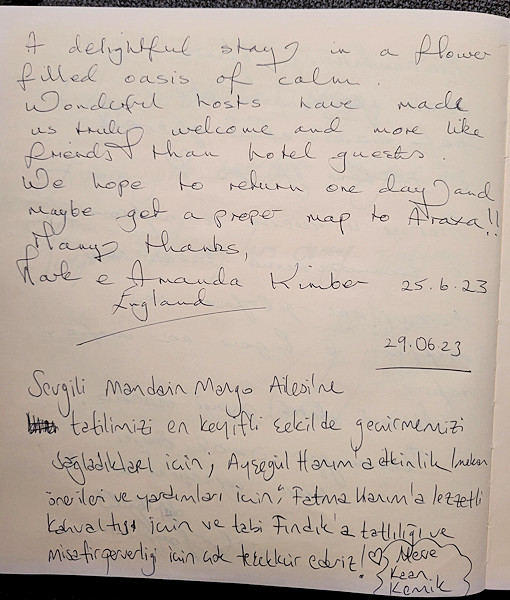 A delightful stay in a flower
filled oasis of calm.
Wonderful hosts have made
us truly welcome and more like
friends than hotel guests.
We hope to return one day and
maybe get a proper map to Araxa!!
Many thanks,
Mark e Amanda Kimber 25.6.23
England
29.06.23
Sevgili Mandain Mango Ailesi'ne
tatilimizi en keyifli şekilde geçirmemizi
sağladıkları için; Ayşegül Hanım'a etkinlik/mekan
önerileri ve yardımları için; Fatma Hanım'a lezzetli
kahvaltısı için ve tabi Fındık'a tatlılığı ve
misafirperverliği için çok teşekkür ederiz! ♡ Merve
Kaan
Kemik